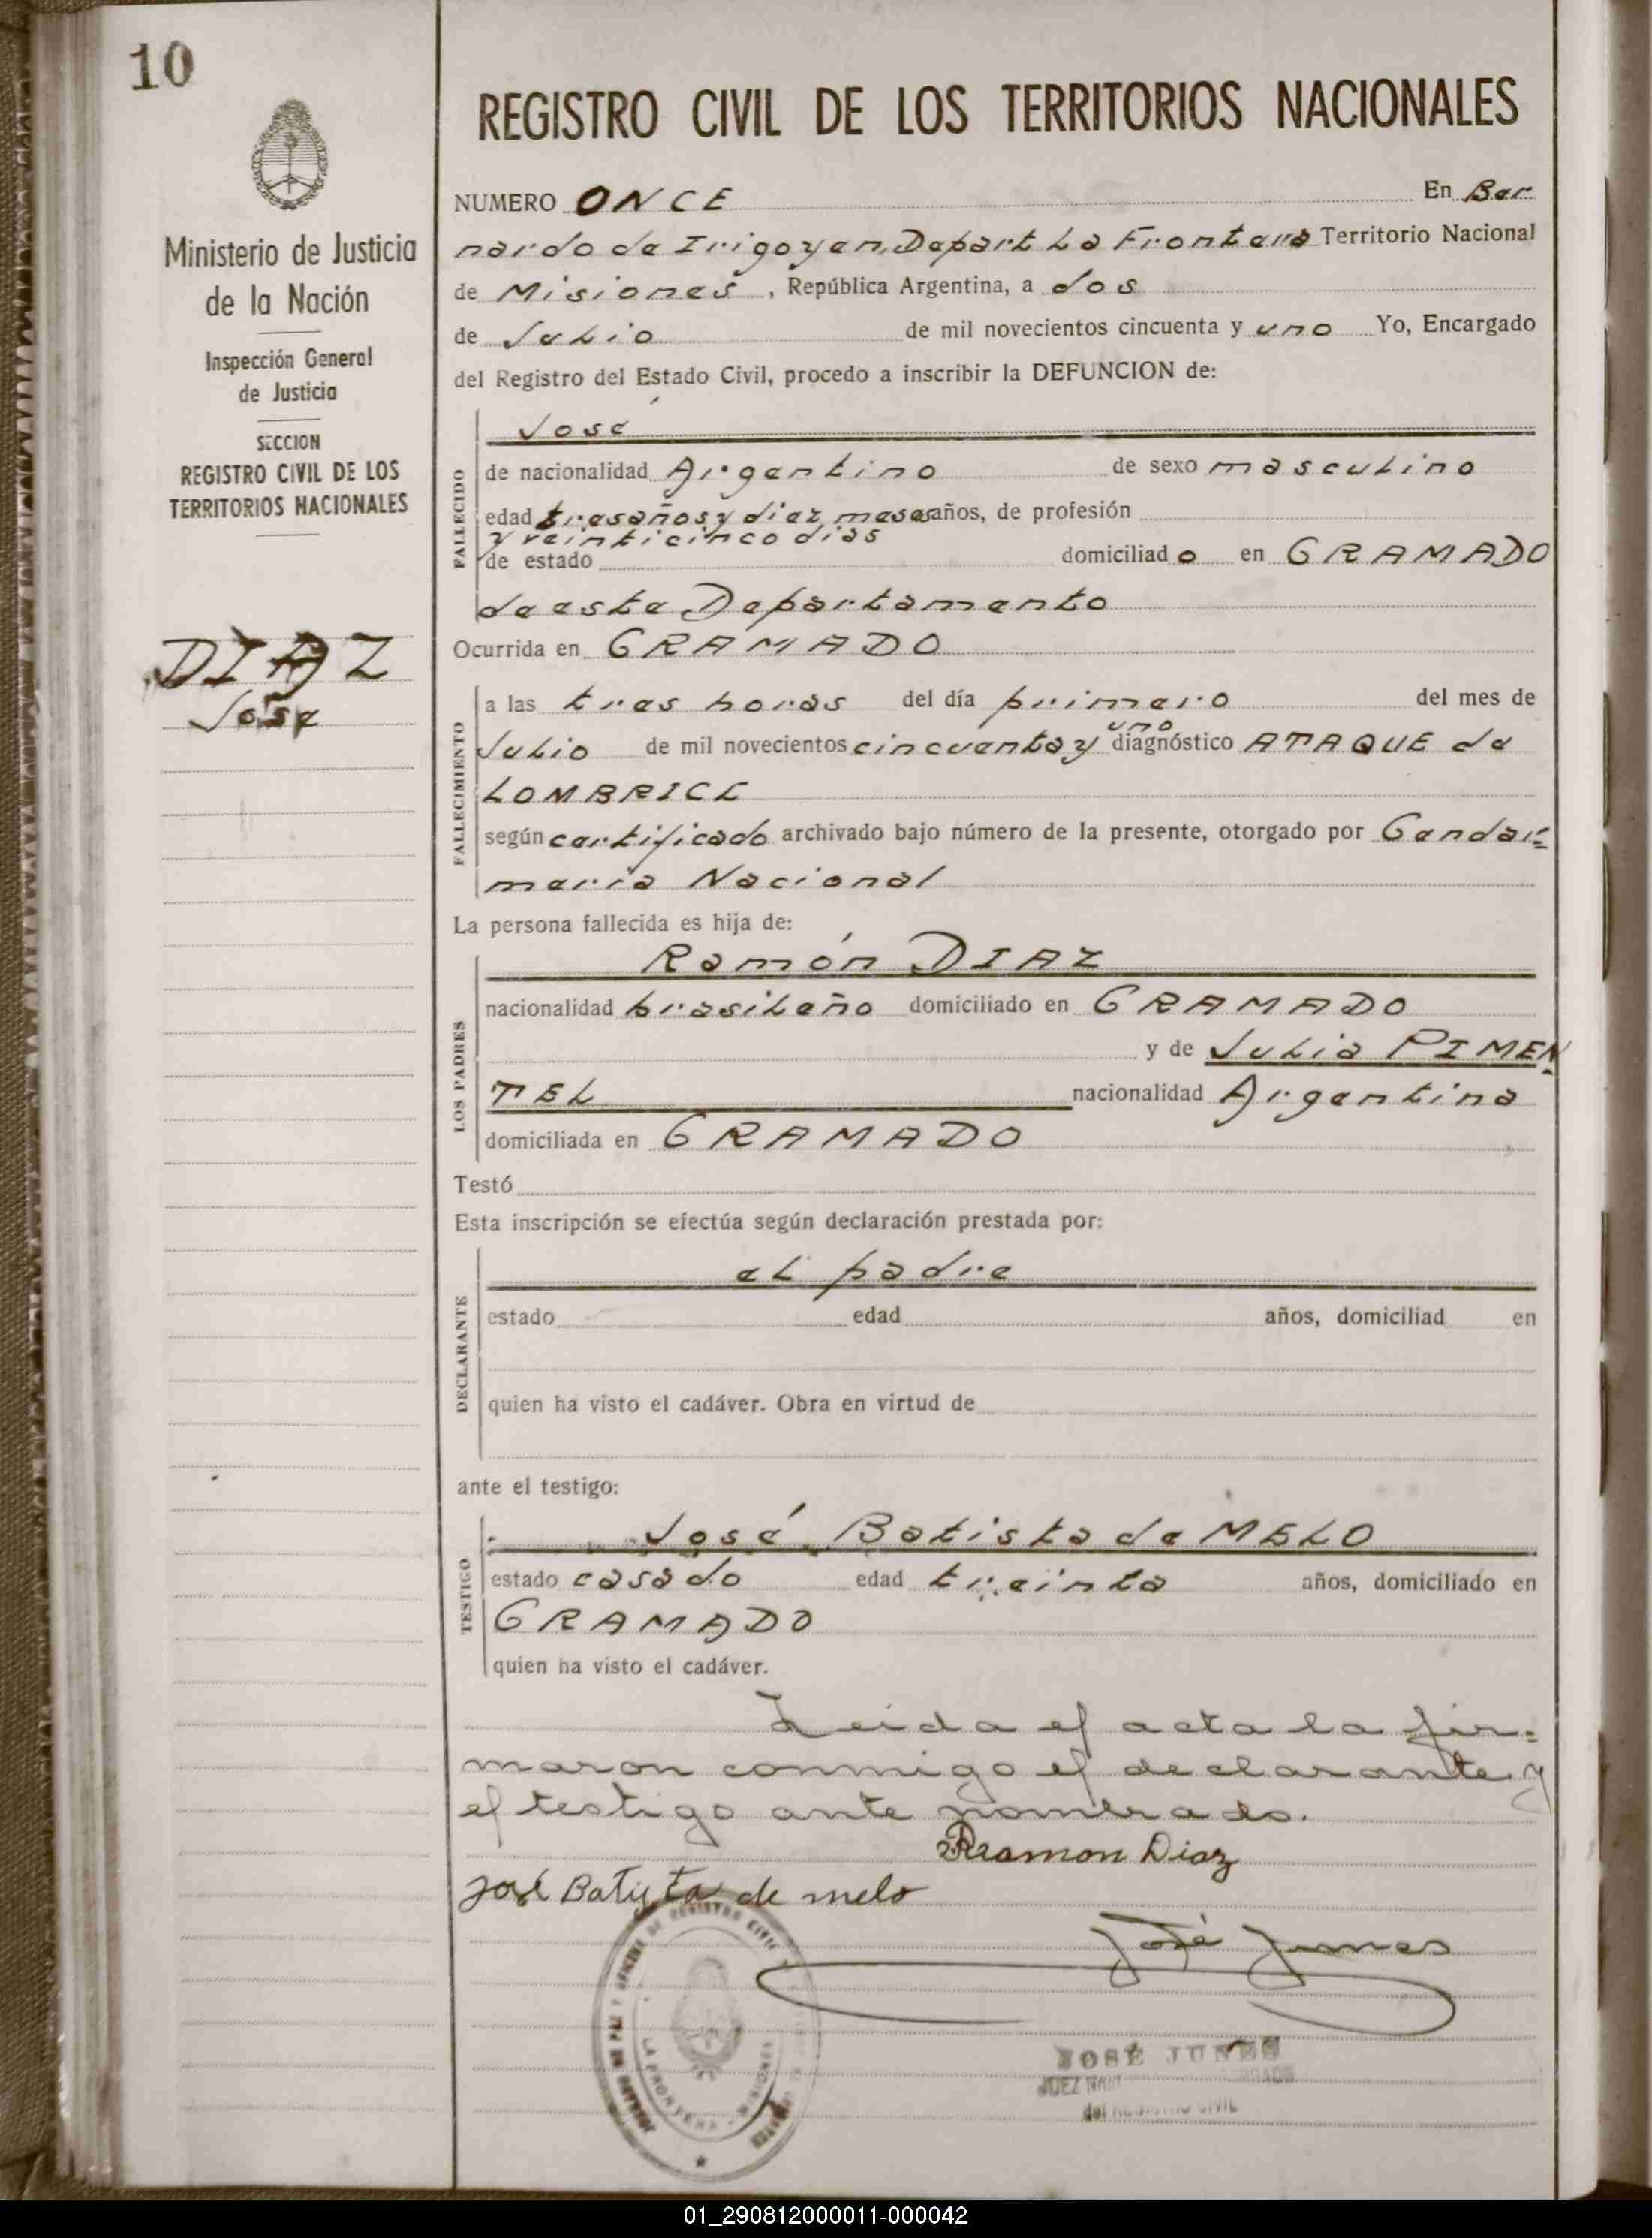 10
REGISTRO CIVIL DE LOS TERRITORIOS NACIONALES
Ministerio de Justicia
de la Nación
Inspección General
de Justicia
SECCION
REGISTRO CIVIL DE LOS
TERRITORIOS NACIONALES
DIAZ
José
NUMERO ONCE En Ber
nardo de Irigoyen, Depart La Frontera Territorio Nacional
de Misiones, República Argentina, a dos
de Julio de mil novecientos cincuenta y uno Yo, Encargado
del Registro del Estado Civil, procedo a inscribir la DEFUNCION de:
FALLECIDO
José
de nacionalidad Argentino de sexo masculino
edad tres años y diez meses años, de profesión
y veinticinco dias
de estado domiciliado en GRAMADO
de este Departamento
Ocurrida en GRAMADO
FALLECIMIENTO
a las tres horas del día primero del mes de
uno
Julio de mil novecientos cincuenta y diagnóstico ATAQUE de
LOMBRICE
según certificado archivado bajo número de la presente, otorgado por Gendar=
meria Nacional
La persona fallecida es hija de:
LOS PADRES
Ramón DIAZ
nacionalidad brasileño domiciliado en GRAMADO
y de Julia PIMEN
TEL nacionalidad Argentina
domiciliada en GRAMADO
Testó
Esta inscripción se efectúa según declaración prestada por:
DECLARANTE
el padre
estado edad años, domiciliad en
quien ha visto el cadáver. Obra en virtud de
ante el testigo:
TESTIGO
José Batista de MELO
estado casado edad treinta años, domiciliado en
GRAMADO
quien ha visto el cadáver.
Leida el acta la fir=
maron conmigo el declarante y
el testigo ante nombrado.
Ramon Diaz
José Batista de melo
José Junes
JOSÉ JUNES
JUEZ
del REGISTRO CIVIL
DE PAZ Y OFICINA DE REGISTRO CIVIL
LA FRONTERA - MISIONES
01_290812000011-000042